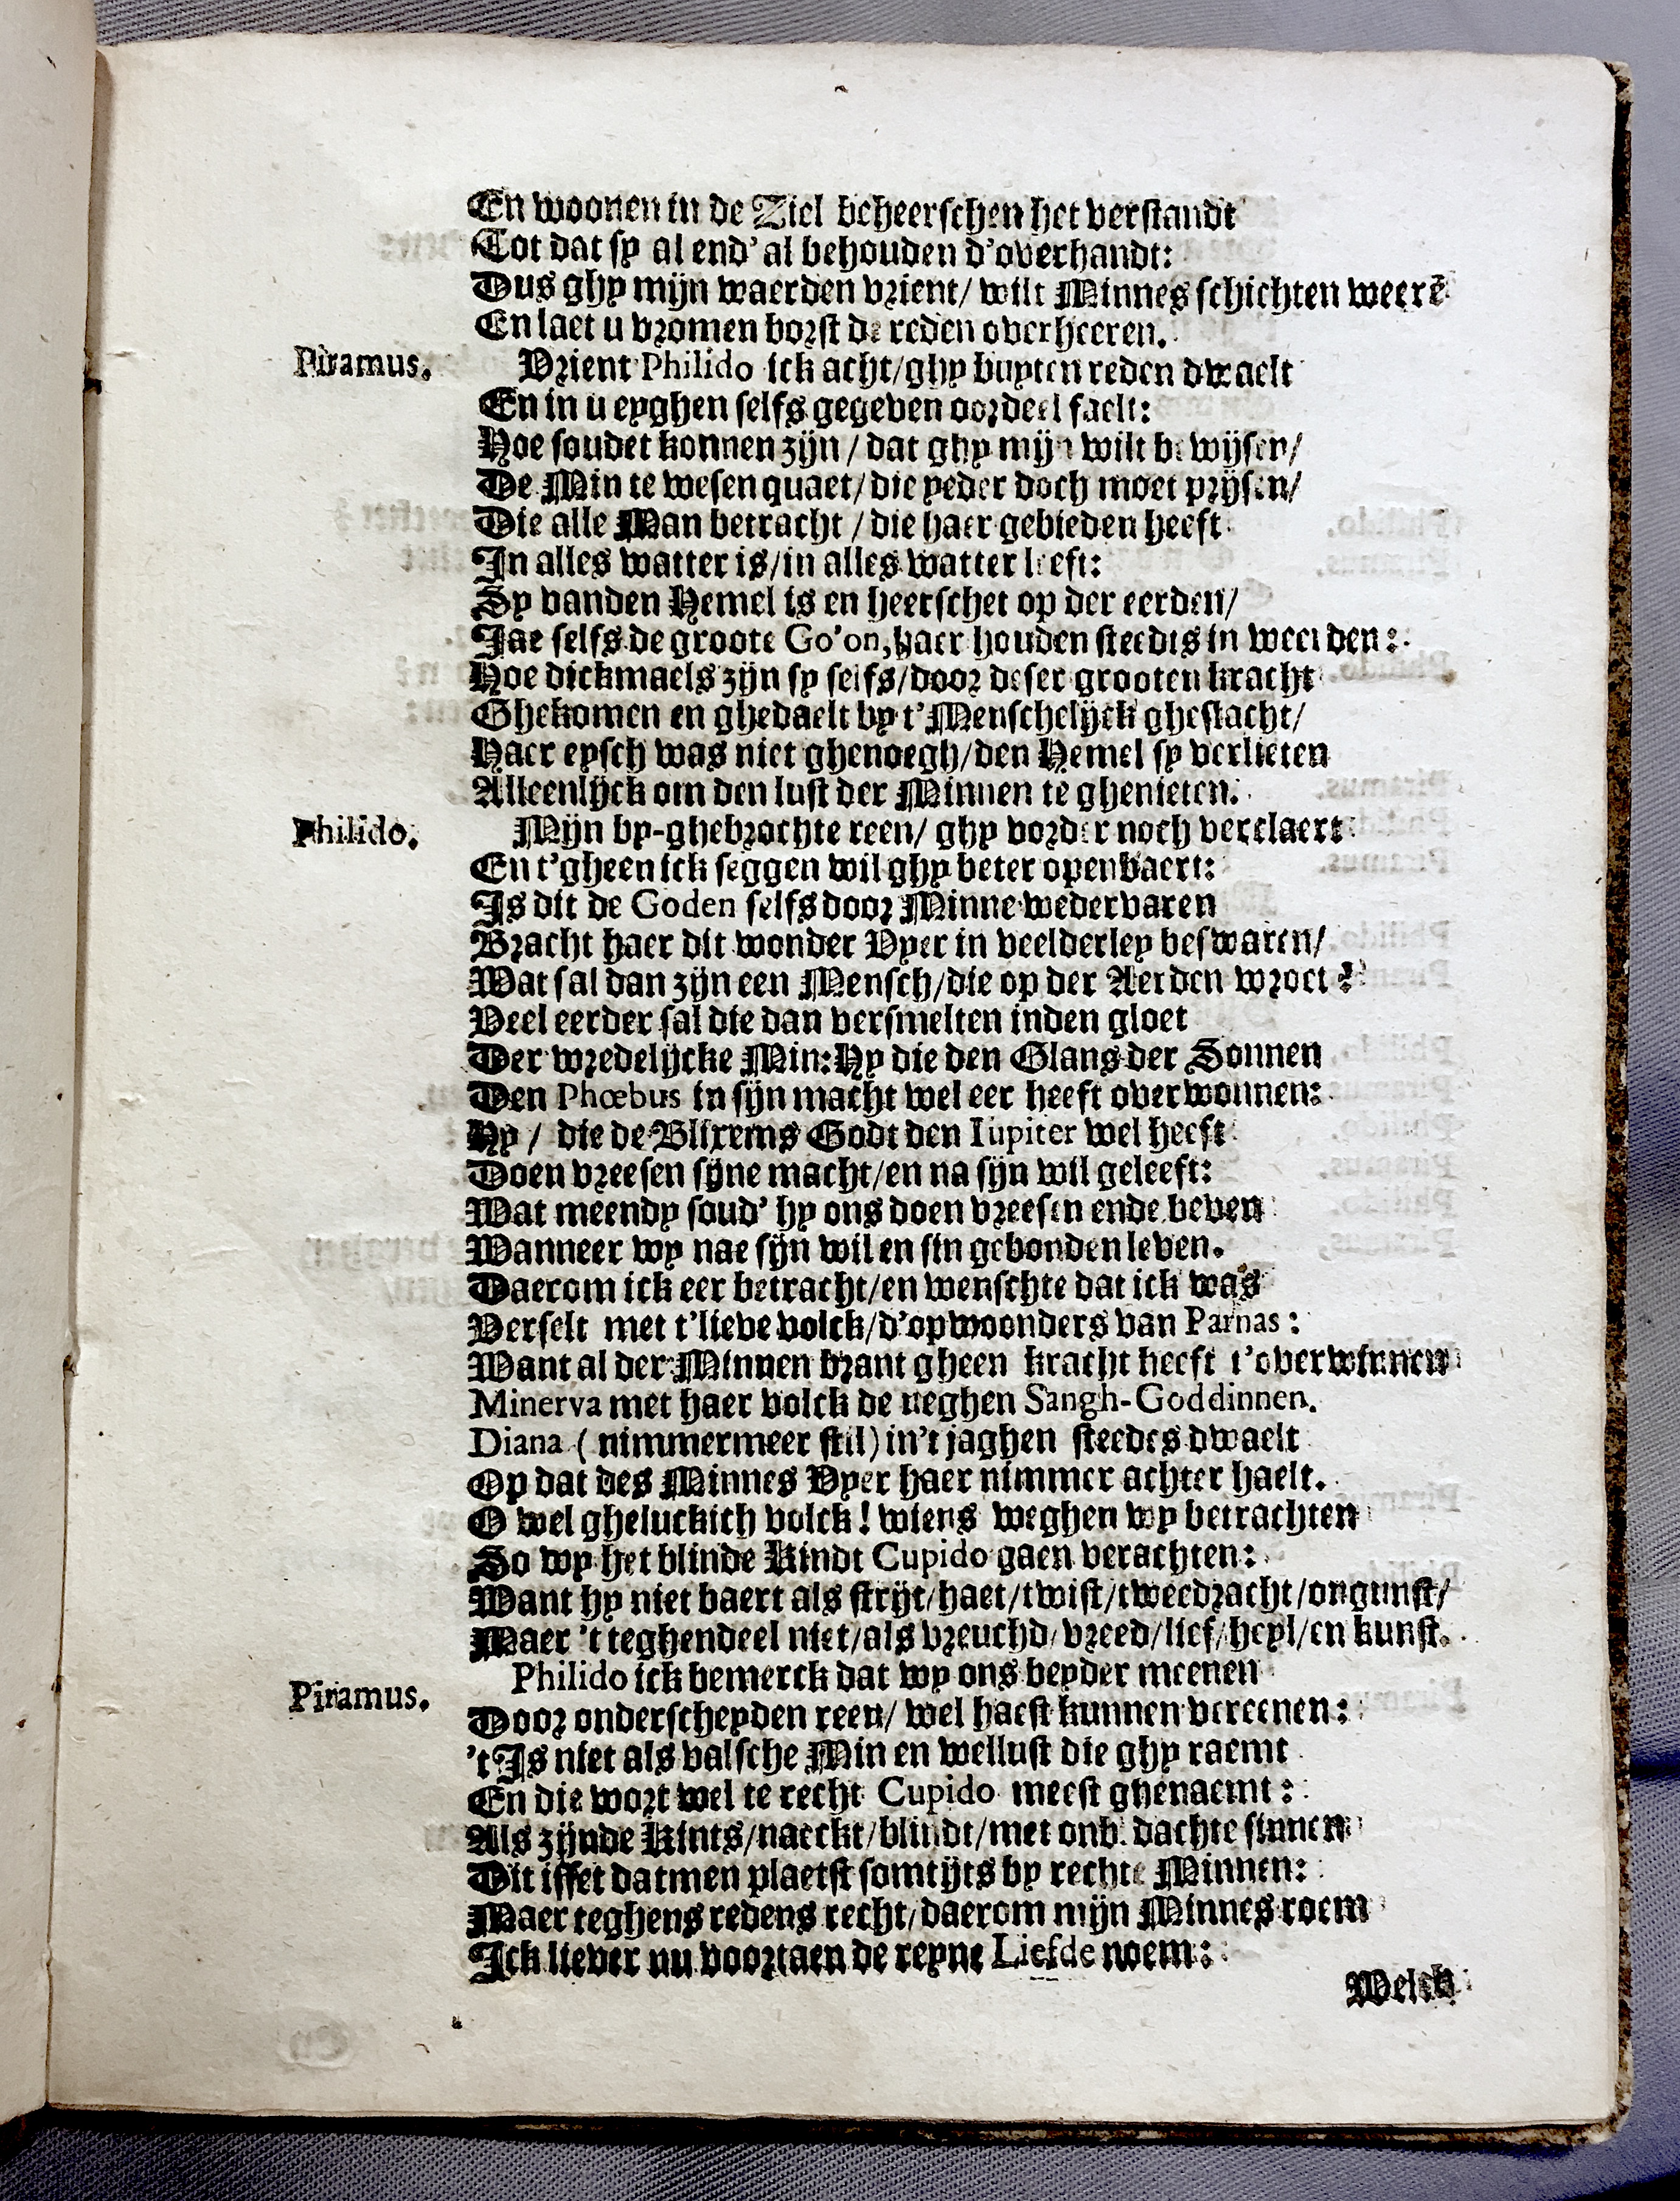 En woonen in de Ziel beheerschen het verstandt
Tot dat sy al end' al behouden d'overhandt:
Dus ghy mijn waerden vrient/ wilt Minnes schichten weerē
En laet u vromen borst de reden overheeren.
Piramus. Vrient Philido ick acht/ghy buyten reden dwaelt
En in u eyghen selfs gegeven oordeel faelt:
Hoe soudet konnen zijn / dat ghy mijn wilt bewijsen/
De Min te wesen quaet/ die yeder doch moet prijsen/
Die alle Man betracht / die haer gebieden heeft
In alles watter is/in alles watter leeft:
Sy vanden Hemel is en heerschet op der eerden/
Jae selfs de groote Go'on, haer houden steedts in weerden:
Hoe dickmaels zijn sy selfs/door deser grooten kracht
Ghekomen en ghedaelt by t'Menschelijck gheslacht/
Haer eysch was niet ghenoegh/den Hemel sy verlieten
Alleenlijck om den lust der Minnen te ghenieten.
Philido. Mijn by-ghebrochte reen/ ghy vorder noch verclaert
En t'gheen ick seggen wil ghy beter openbaert:
Is dit de Goden selfs door Minne wedervaren
Bracht haer dit wonder Vyer in veelderley beswaren/
Wat sal dan zijn een Mensch/die op der Aerden wroet?
Veel eerder sal die dan versmelten inden gloet
Der wredelijcke Min: Hy die den Glans der Sonnen
Den Phœbus in sijn macht wel eer heeft overwonnen:
Hy / die de Blixems Godt den Iupiter wel heeft
Doen vreesen sijne macht/en na sijn wil geleeft:
Wat meendy soud' hy ons doen vreesen ende beven
Wanneer wy nae sijn wil en sin gebonden leven.
Daerom ick eer betracht/en wenschte dat ick was
Verselt met t'lieve volck/d'opwoonders van Parnas:
Want al der Minnen brant gheen kracht heeft t'overwinnen
Minerva met haer volck de neghen Sangh-Goddinnen.
Diana (nimmermeer stil) in't jaghen steedes dwaelt
Op dat des Minnes Vyer haer nimmer achter haelt.
O wel gheluckich volck! wiens weghen wy betrachten
So wy het blinde Kindt Cupido gaen verachten:
Want hy niet baert als strijt/haet/twist/tweedracht/ongunst/
Maer 't teghendeel niet/als vreuchd/vreed/lief/heyl/en kunst.
Piramus. Philido ick bemerck dat wy ons beyder meenen
Door onderscheyden reen/ wel haest kunnen vereenen:
't Is niet als valsche Min en wellust die ghy raemt
En die wort wel te recht Cupido meest ghenaemt:
Als zijnde Kints/naeckt/blindt/met onb. dachte sinnen
Dit isset datmen plaetst somtijts by rechte Minnen:
Maer teghens redens recht/daerom mijn Minnes roem
Ick liever nu voortaen de reyne Liefde noem:
Welck